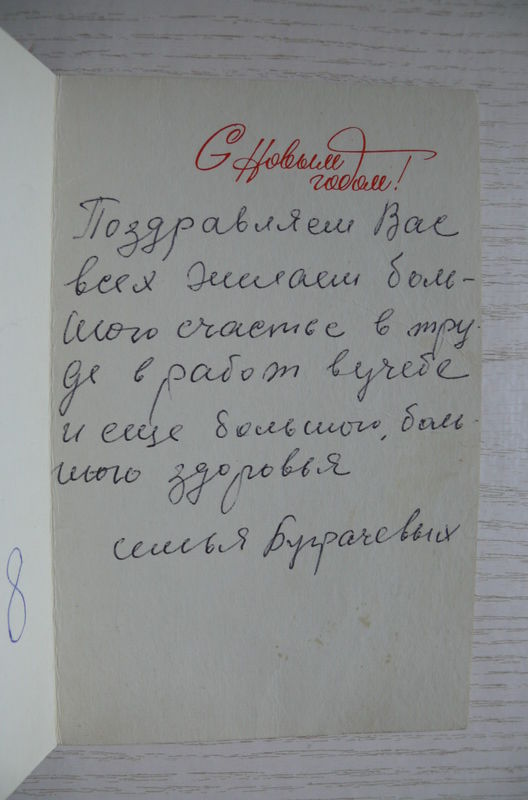 С Новым
годом!
Поздравляем Вас
всех желаем боль-
шого счастье в тру-
де в работ в учебе
и еще большого, боль-
шого здоровья
семья
8